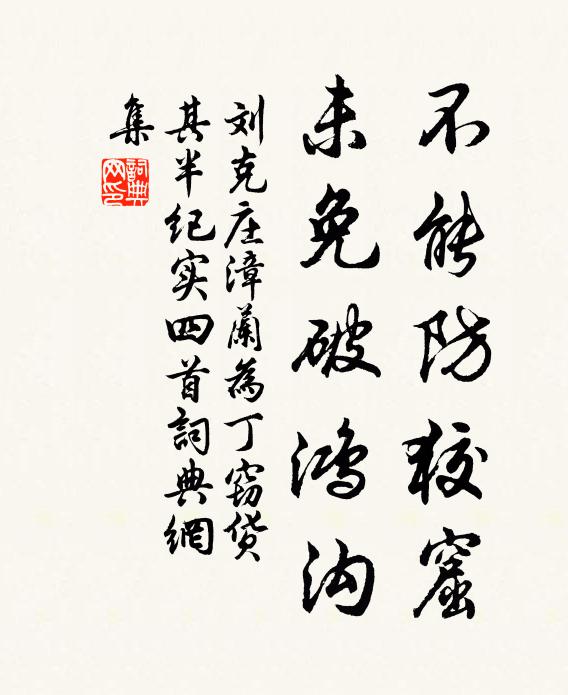 不能防狡窟
未免破鸿沟
刘克庄漳蘭為丁窃貨
其半纪实四首詞典網
集
詞典
网印